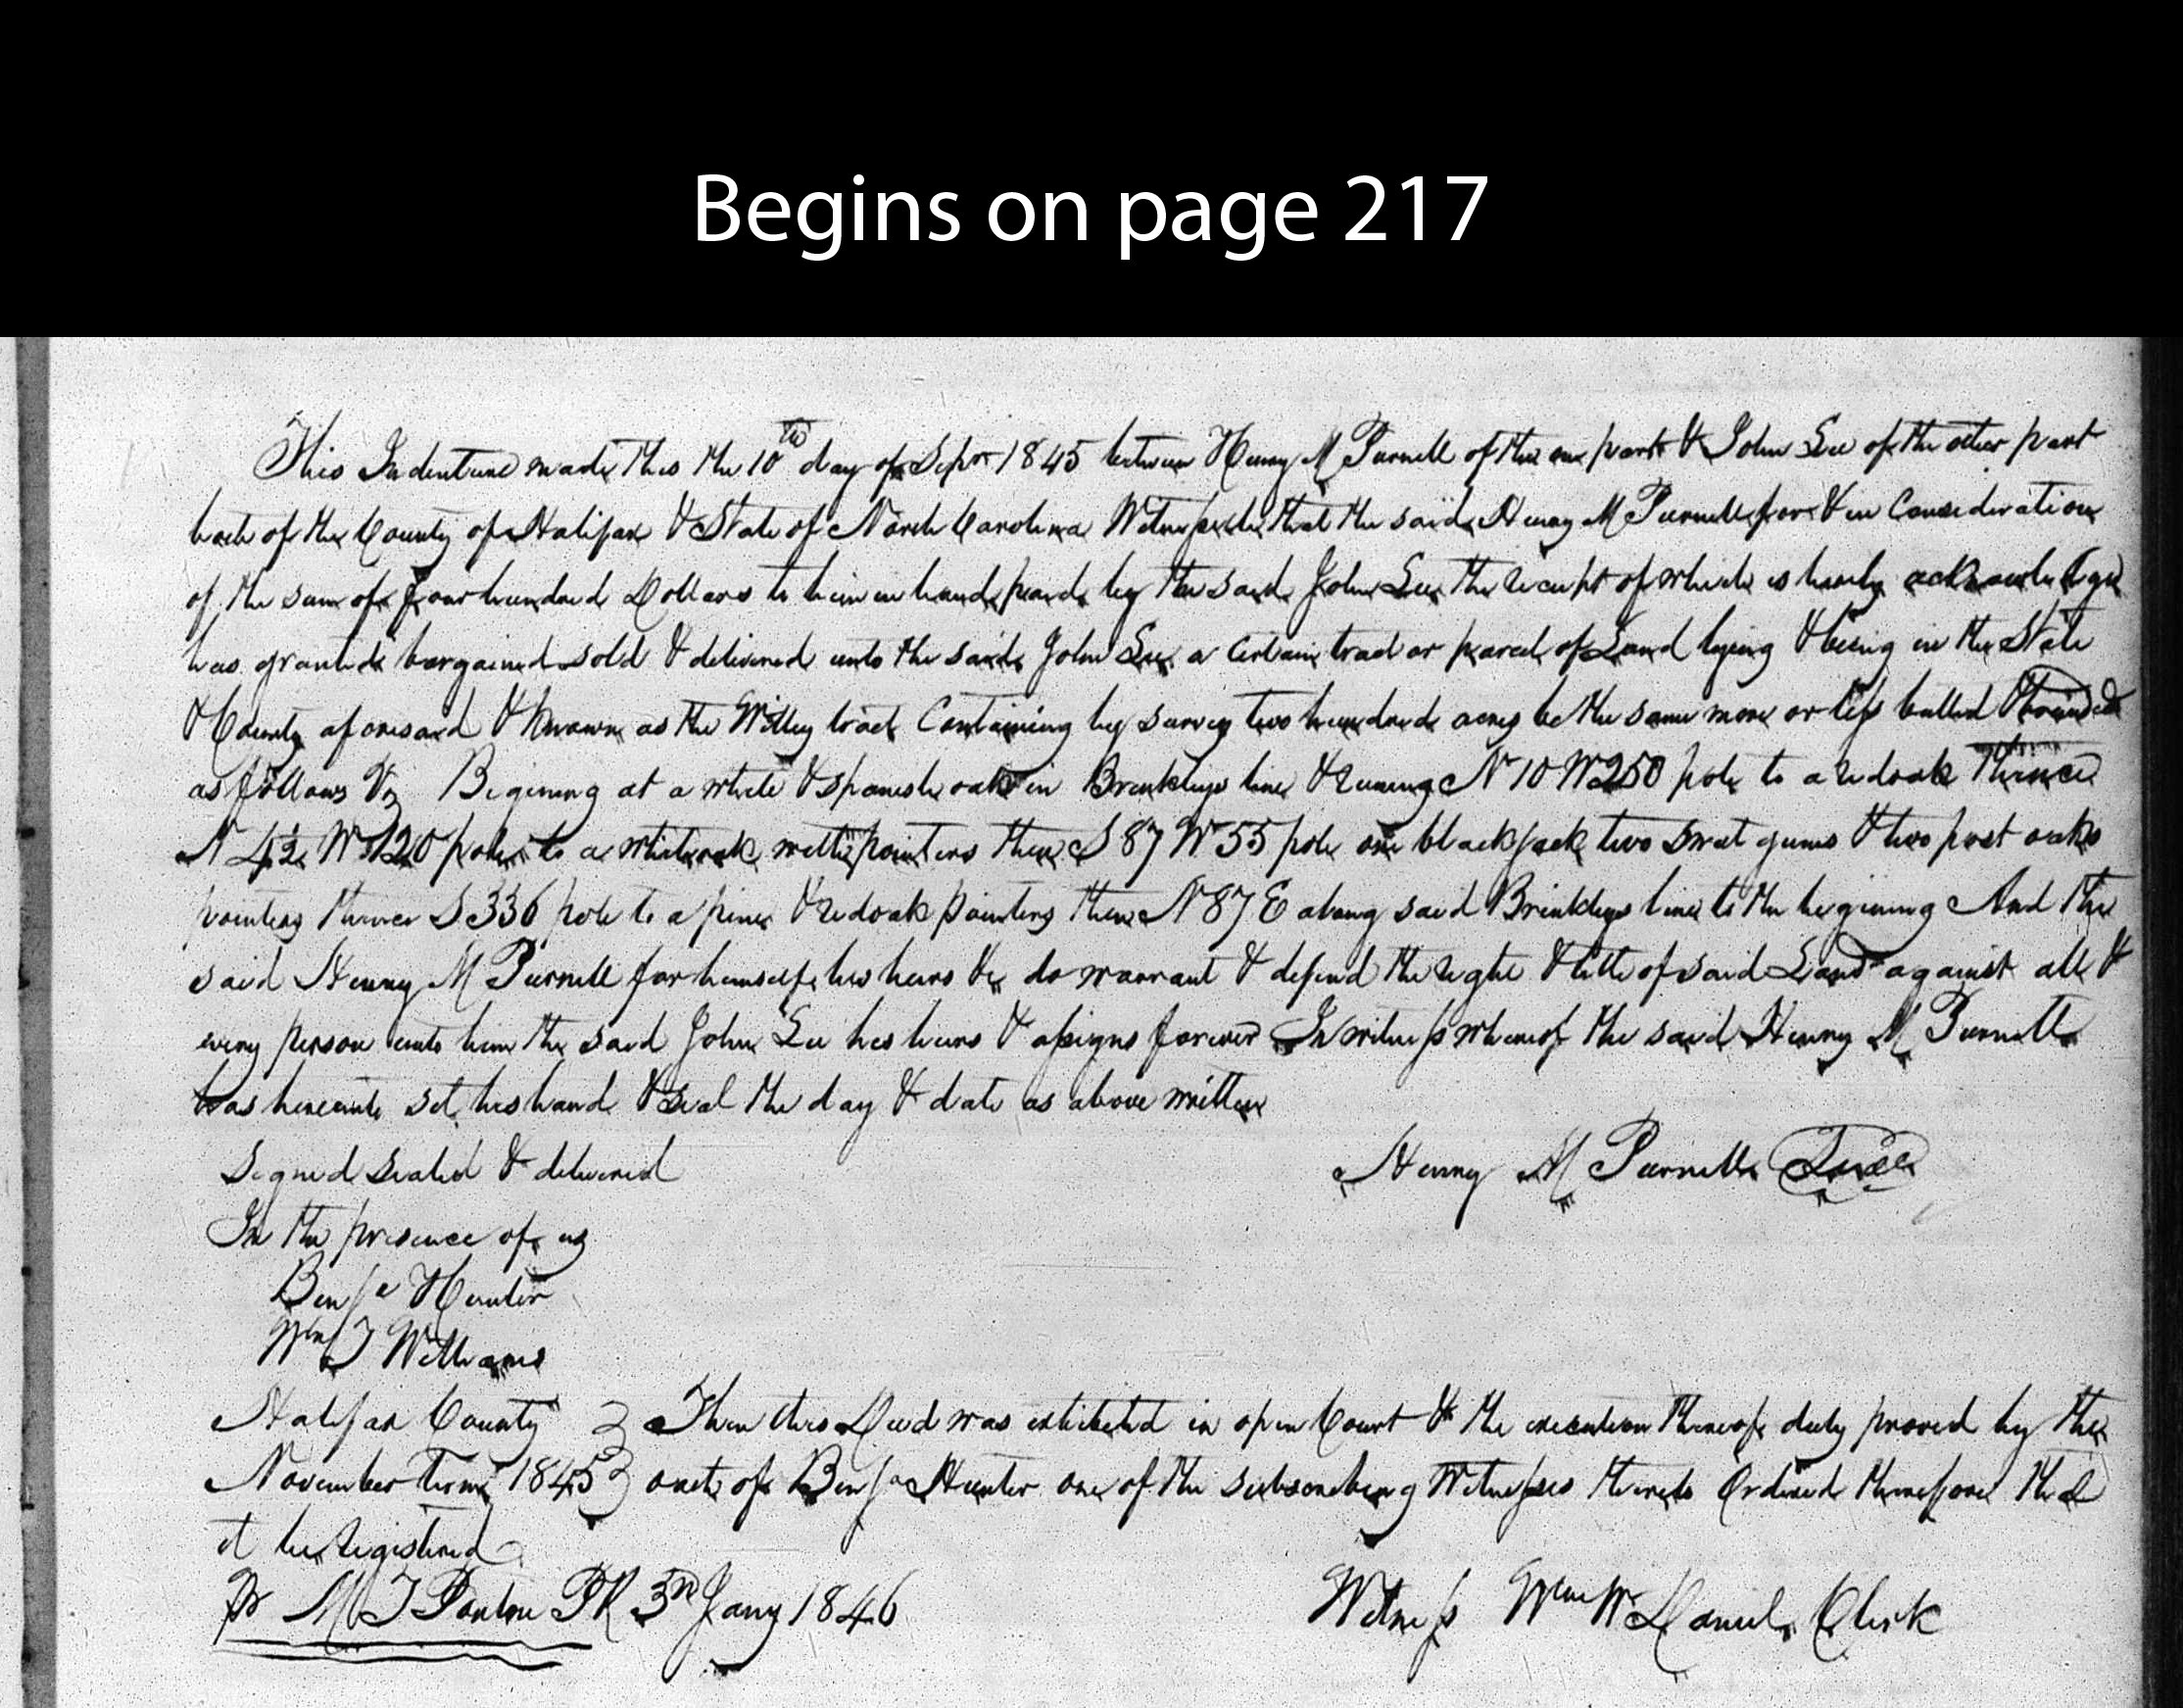 Begins on page 217
This Indenture made this the 10th day of Sepr 1845 between Henry M Purnell of the one part & John Lee of the other part
both of the County of Halifax & State of North Carolina Witnesseth that the said Henry M Purnell for & in Consideration
of the sum of Four hundred Dollars to him in hand paid by the said John Lee the recept of which is hearby acknowledged
has granted bargained sold & delivered unto the said John Lee a Certain tract or parcel of Land lying & being in the State
& County aforesaid & known as the Willey tract Containing by survey two hundred acres be the same more or less butted & bounded
as follows Viz Begining at a white & spanish oak in Brinkleys line & runing N 10 W 250 pole to a red oak Thence
N 42 W 120 poles to a white oak with pointers thence S 87 W 55 pole one black jack two sweet gums & two post oaks
pointers thence S 336 pole to a pine & red oak pointers thence N 87 E along said Brinkleys line to the begining And the
said Henry M Purnell for himself his heirs &c do warrant & defend the right & title of said Land against all &
every person unto him the said John Lee his heirs & assigns forever In witness whereof the said Henry M Purnell
has hereunto set his hand & seal the day & date as above written
Signed Sealed & delivered Henry M Purnell Seal
In the presence of us
Benja Hunter
Wm J Williams
Halifax County } Then this Deed was exhibited in open Court & the execution thereof duly proved by the
November term 1845 } oath of Benja Hunter one of the subscribing Witnesses thereto Ordered thereupon that
it be Registered
Pr M J Ponton PR 3rd Jany 1846 Witness Wm W Daniel Clerk